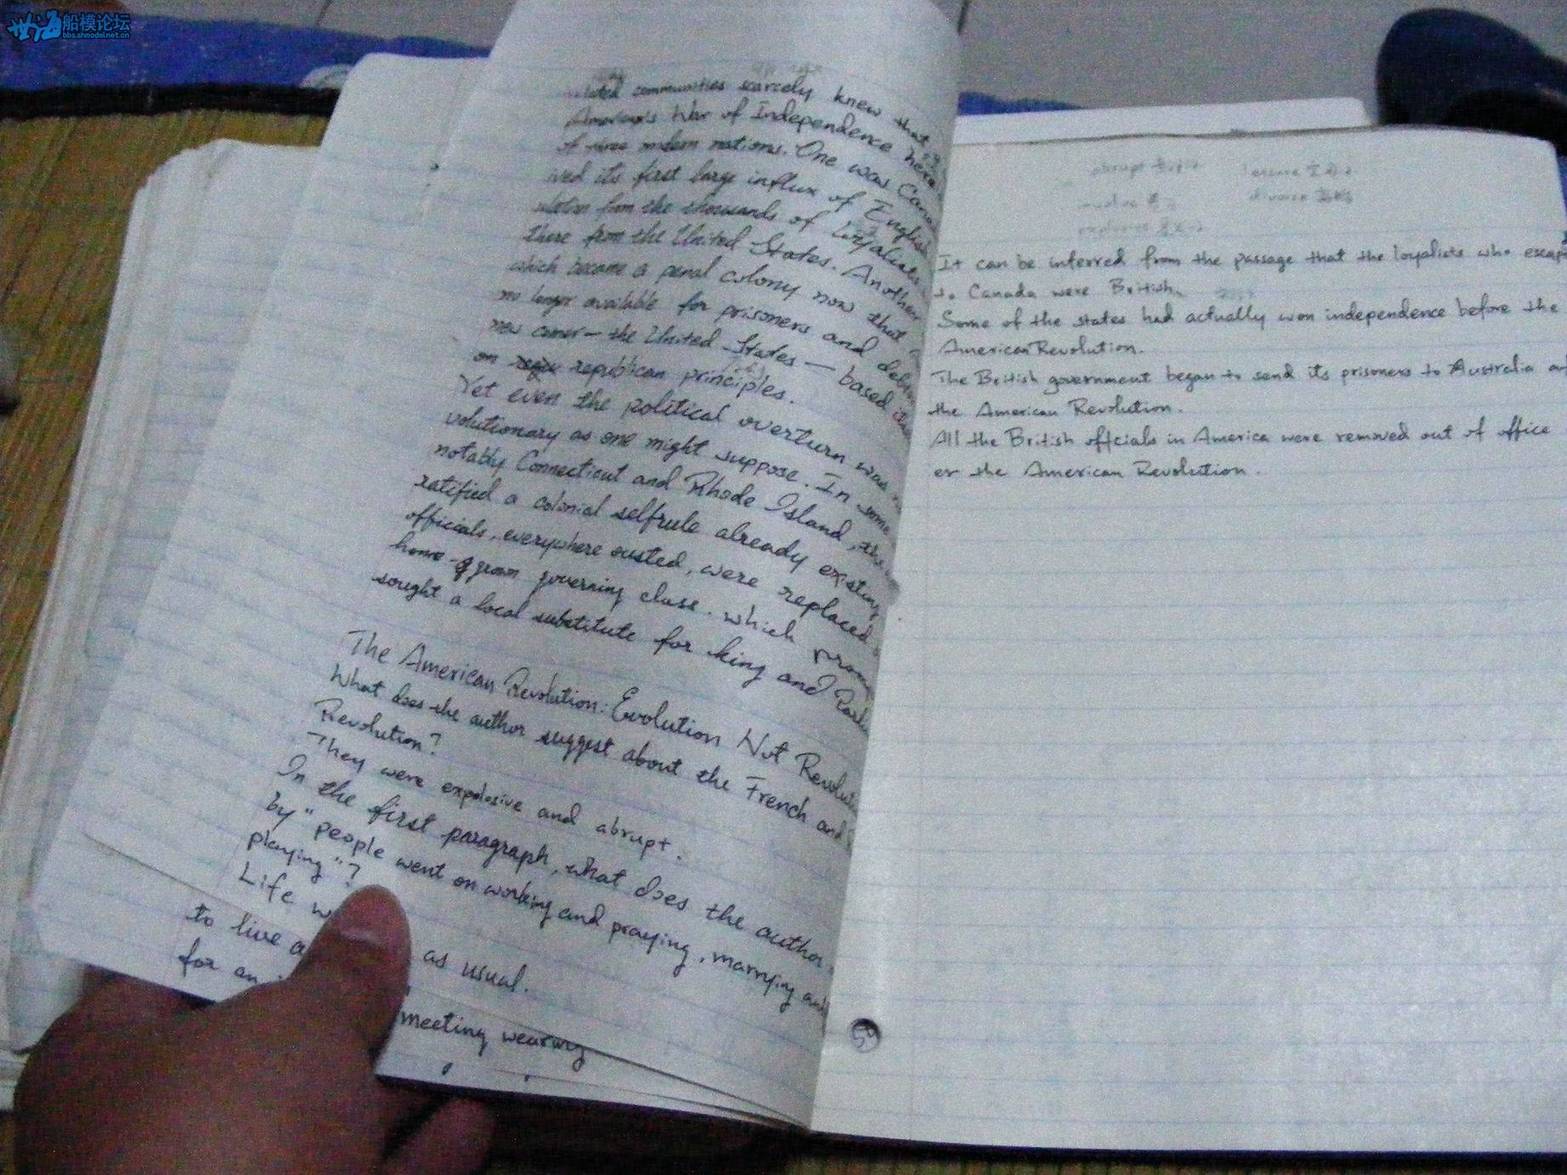 船模论坛
bbs.shmodel.net.cn
communities scarcely knew that
America's War of Independence
of three modern nations. One was
its first large influx of English
from the thousands of loyalists
there from the United States. Another
which became a penal colony now that
no longer available for prisoners and
new comer — the United States — based
on republican principles.
Yet even the political overturn was
volutionary as one might suppose. In some
notably Connecticut and Rhode Island, the
ratified a colonial selfrule already existing
officials, everywhere ousted, were replaced
home-grown governing class. which
sought a local substitute for king and
The American Revolution: Evolution Not
What does the author suggest about the French and
Revolution?
They were explosive and abrupt.
In the first paragraph, what does the author
by "people went on working and praying, marrying and
playing"?
Life
to live as usual.
for an
meeting wearing
abrupt
evolve
explosive
ensure
divorce
It can be inferred from the passage that the loyalists who
to Canada were British.
Some of the states had actually won independence before the
American Revolution.
The British government began to send its prisoners to Australia
the American Revolution.
All the British offcials in America were removed out of office
er the American Revolution.
59